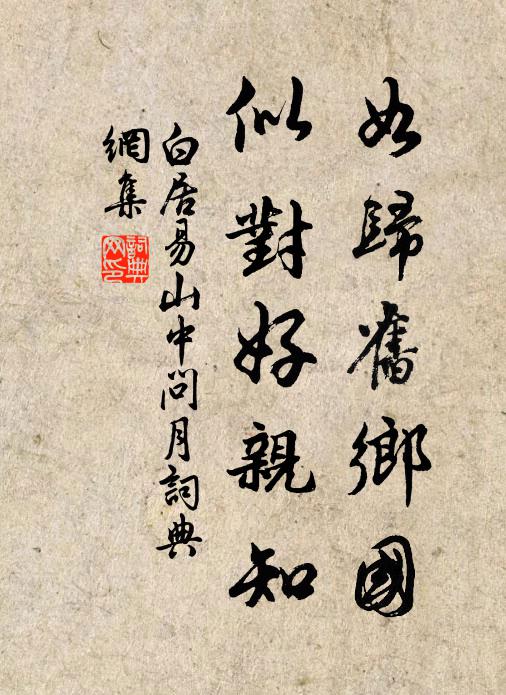 如歸舊鄉國
似對好親知
白居易山中問月詞典
網集
詞典網印